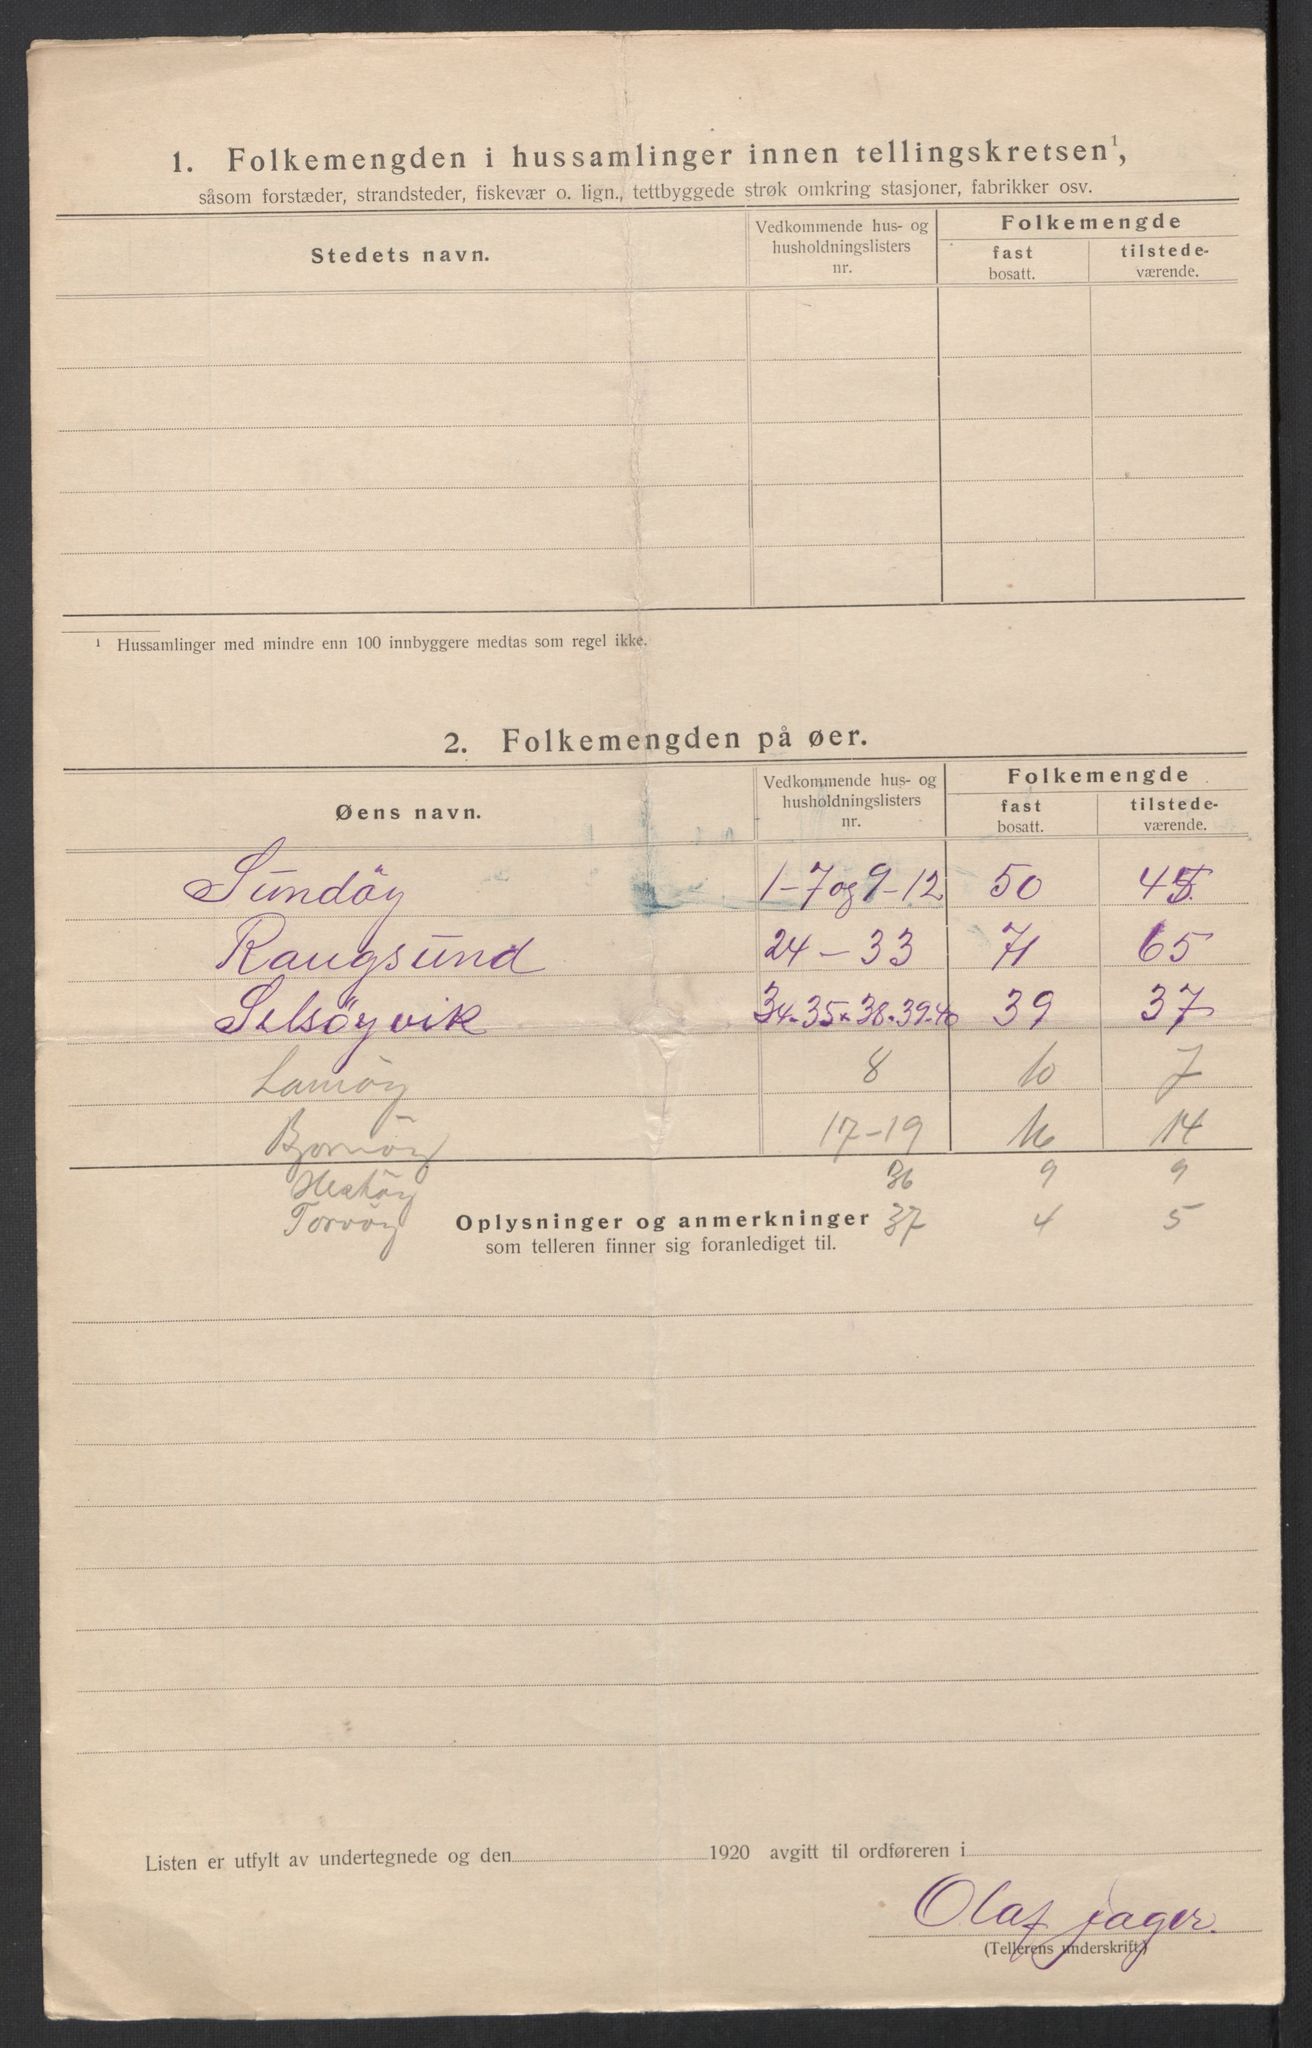 1. Folkemengden i hussamlinger innen tellingskretsen¹,
såsom forstæder, strandsteder, fiskevær o. lign., tettbyggede strøk omkring stasjoner, fabrikker osv.
Stedets navn.
Vedkommende hus- og
husholdningslisters
nr.
Folkemengde
fast
bosatt.
tilstede-
værende.
¹ Hussamlinger med mindre enn 100 innbyggere medtas som regel ikke.
2. Folkemengden på øer.
Øens navn.
Vedkommende hus- og
husholdningslisters
nr.
Folkemengde
fast
bosatt.
tilstede-
værende.
Sundöy 1-7 og 9-12 50 45
Rangsund 24 - 33 71 65
Selsöyvik 34-35 38-39-40 39 37
Lamöy 8 10 7
17-19 16 14
Hestöy 36 9 9
Torvöy 37 4 5
Oplysninger og anmerkninger
som telleren finner sig foranlediget til.
Listen er utfylt av undertegnede og den 1920 avgitt til ordføreren i
Olaf jager.
(Tellerens underskrift)